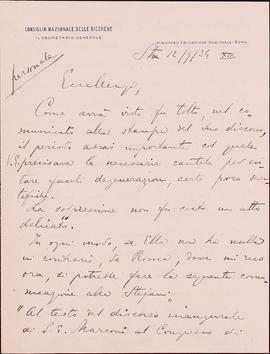 CONSIGLIO NAZIONALE DELLE RICERCHE
IL SEGRETARIO GENERALE
MINISTERO EDUCAZIONE NAZIONALE - ROMA
Stra 12/9/34 XII
personale
Eccellenza,
Come avrà visto fu tolto, nel co-
municato alla stampa del Suo discorso,
il periodo assai importante col quale
S.E. precisava le necessarie cautele per evi-
tare facili degenerazioni, certo poco scien-
tifiche.
La soppressione non fu certo un atto
delicato.
In ogni modo, se Ella non ha nulla
in contrario, da Roma, dove mi reco
ora, si potrebbe fare la seguente comu-
nicazione alla Stefani:
"Al testo del discorso inaugurale
di S.E. Marconi al Congresso di